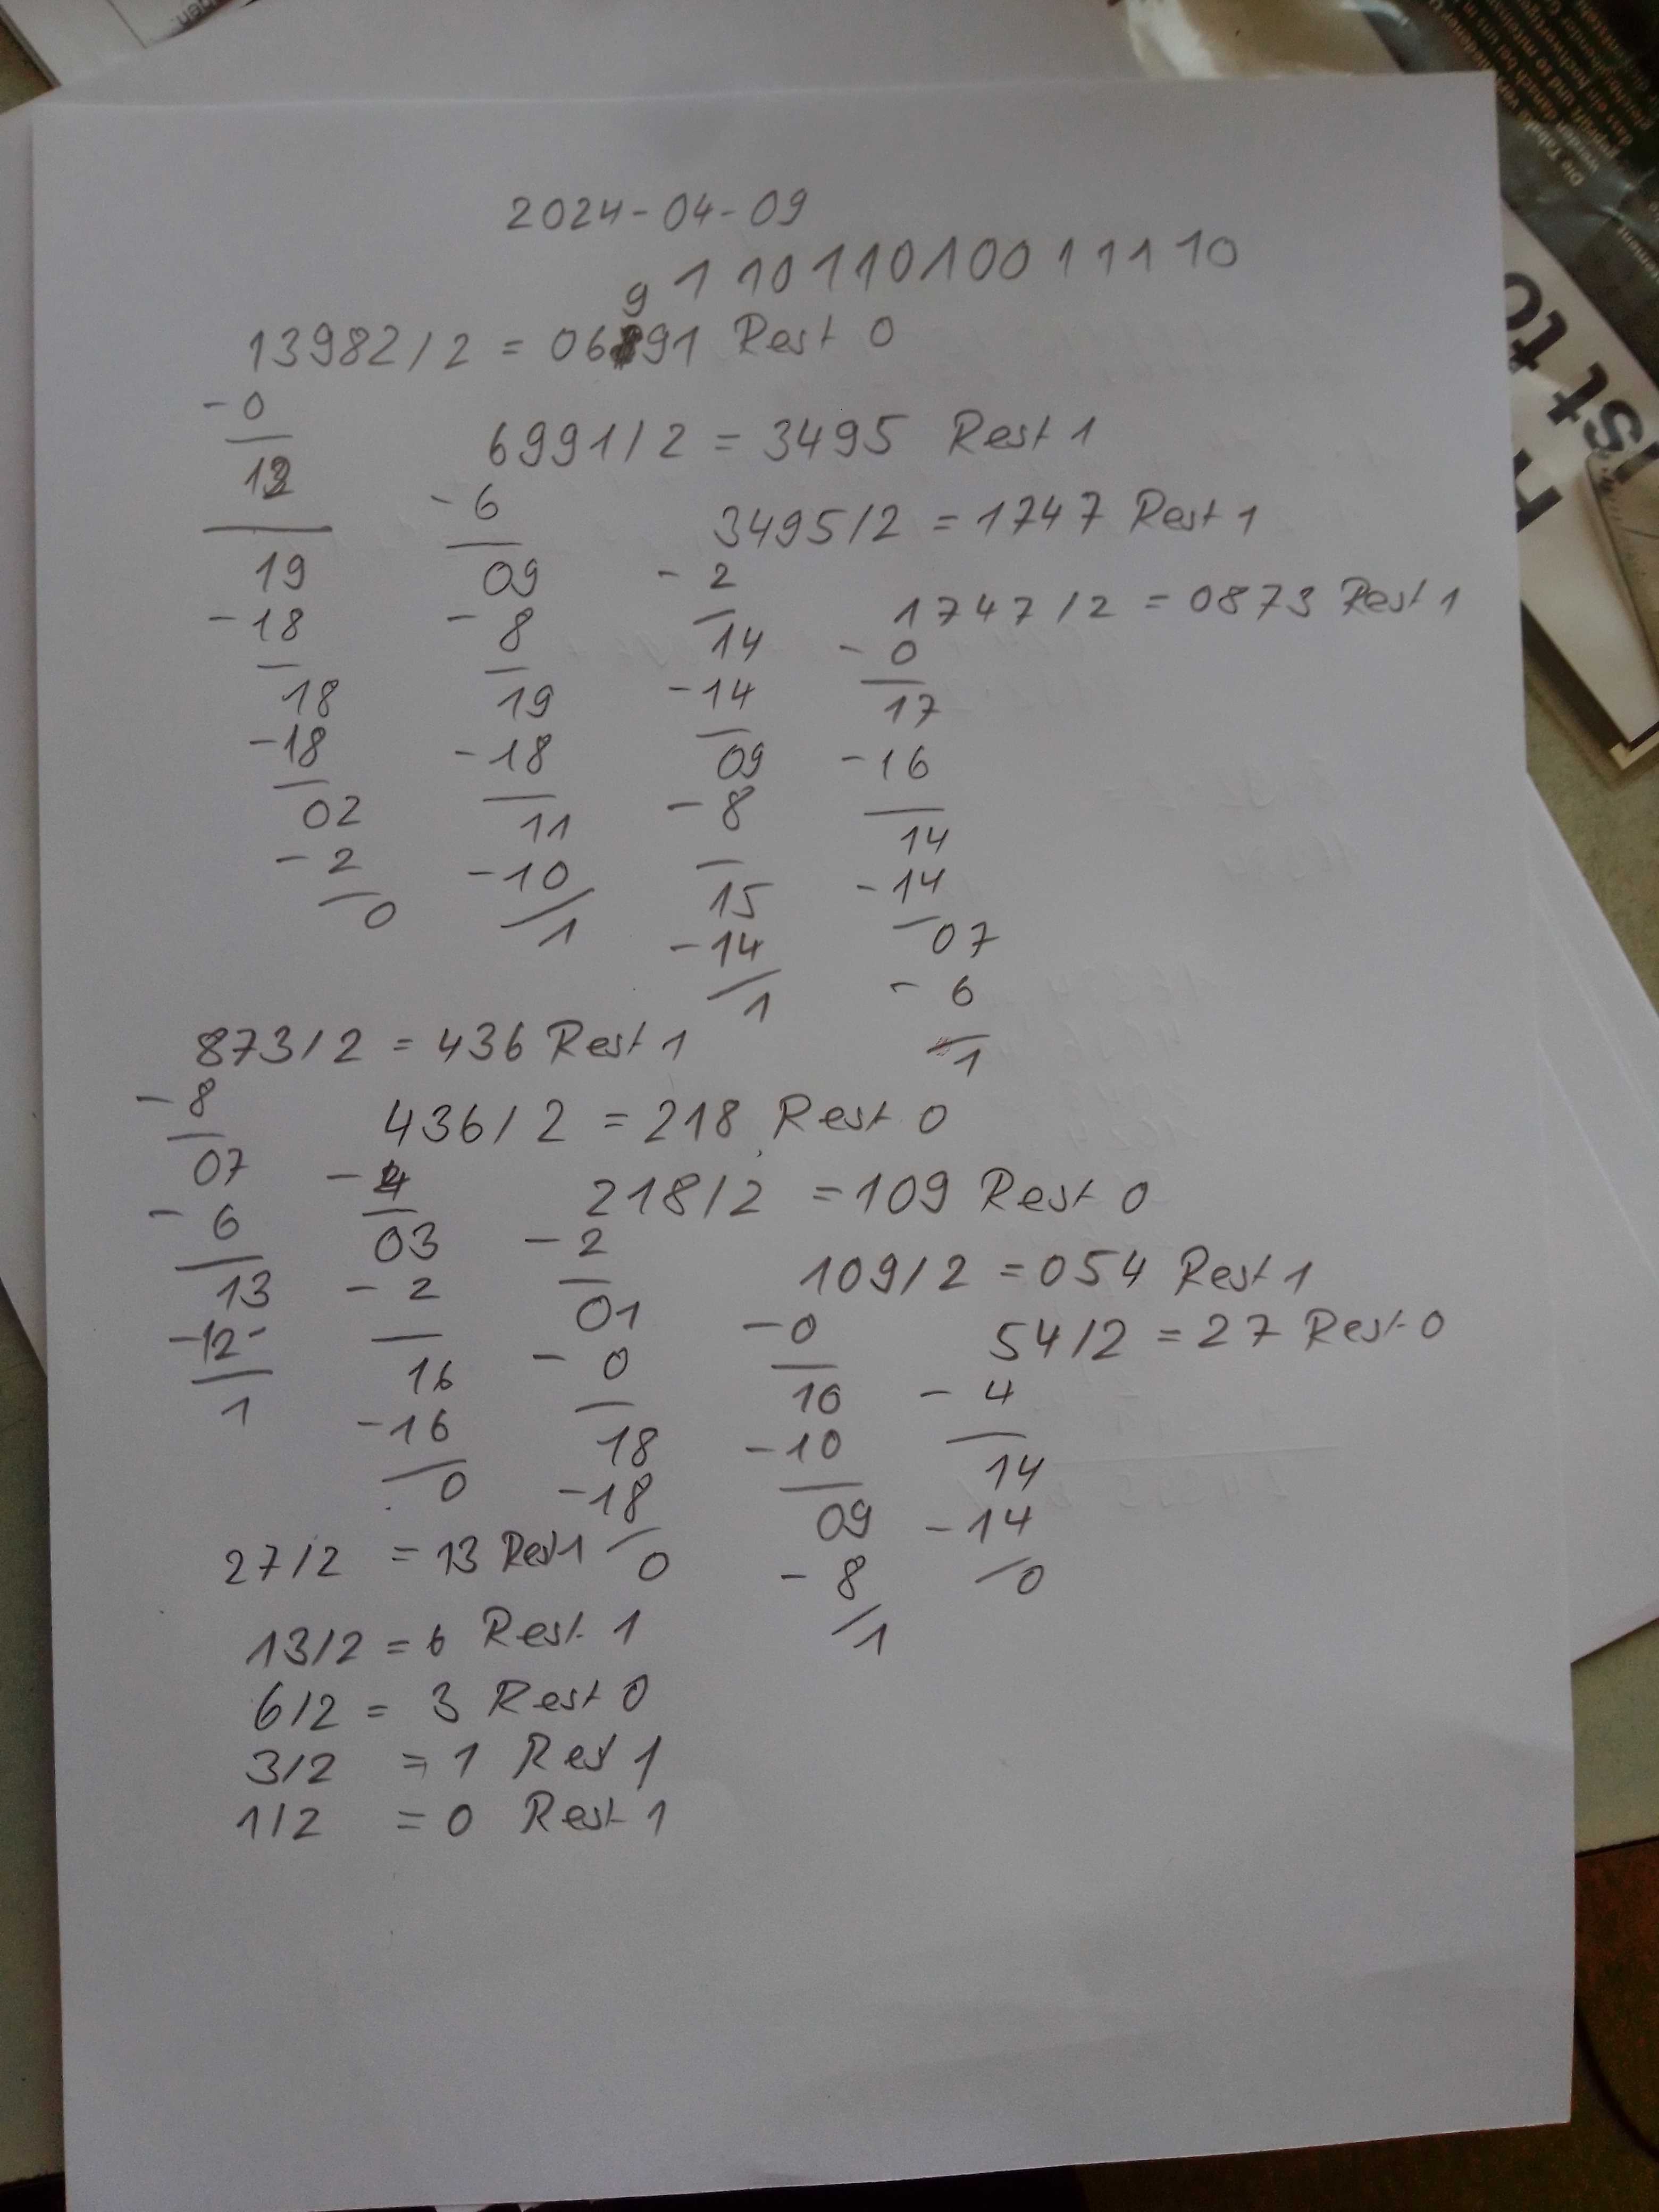 2024-04-09
11011010011110
9
13982/2 = 06891 Rest 0
-0
13
19
-18
18
-18
02
-2
0
6991/2 = 3495 Rest 1
-6
09
-8
19
-18
11
-10
1
3495/2 = 1747 Rest 1
-2
14
-14
09
-8
15
-14
1
1747/2 = 0873 Rest 1
-0
17
-16
14
-14
07
-6
1
873/2 = 436 Rest 1
-8
07
-6
13
-12
1
436/2 = 218 Rest 0
-4
03
-2
16
-16
0
218/2 = 109 Rest 0
-2
01
-0
18
-18
0
109/2 = 054 Rest 1
-0
10
-10
09
-8
1
54/2 = 27 Rest 0
-4
14
-14
0
27/2 = 13 Rest 1
13/2 = 6 Rest 1
6/2 = 3 Rest 0
3/2 = 1 Rest 1
1/2 = 0 Rest 1
st to